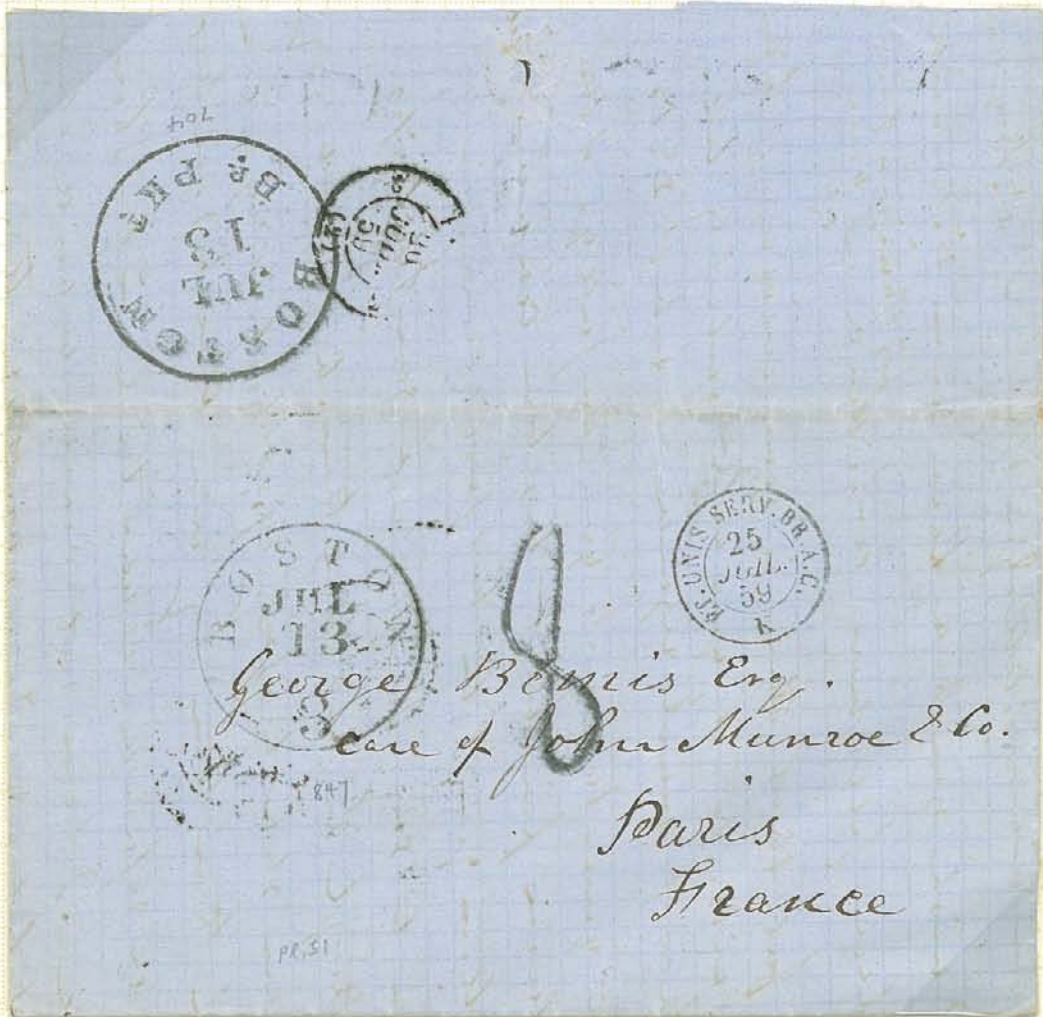 704
BOSTON Br PKT
JUL
13
BOSTON
JUL
13
3
ET. UNIS SERV. BR. A. C.
25
JUIL.
59
K
8
George Bemis Esq.
care of John Munroe & Co.
Paris
France
847